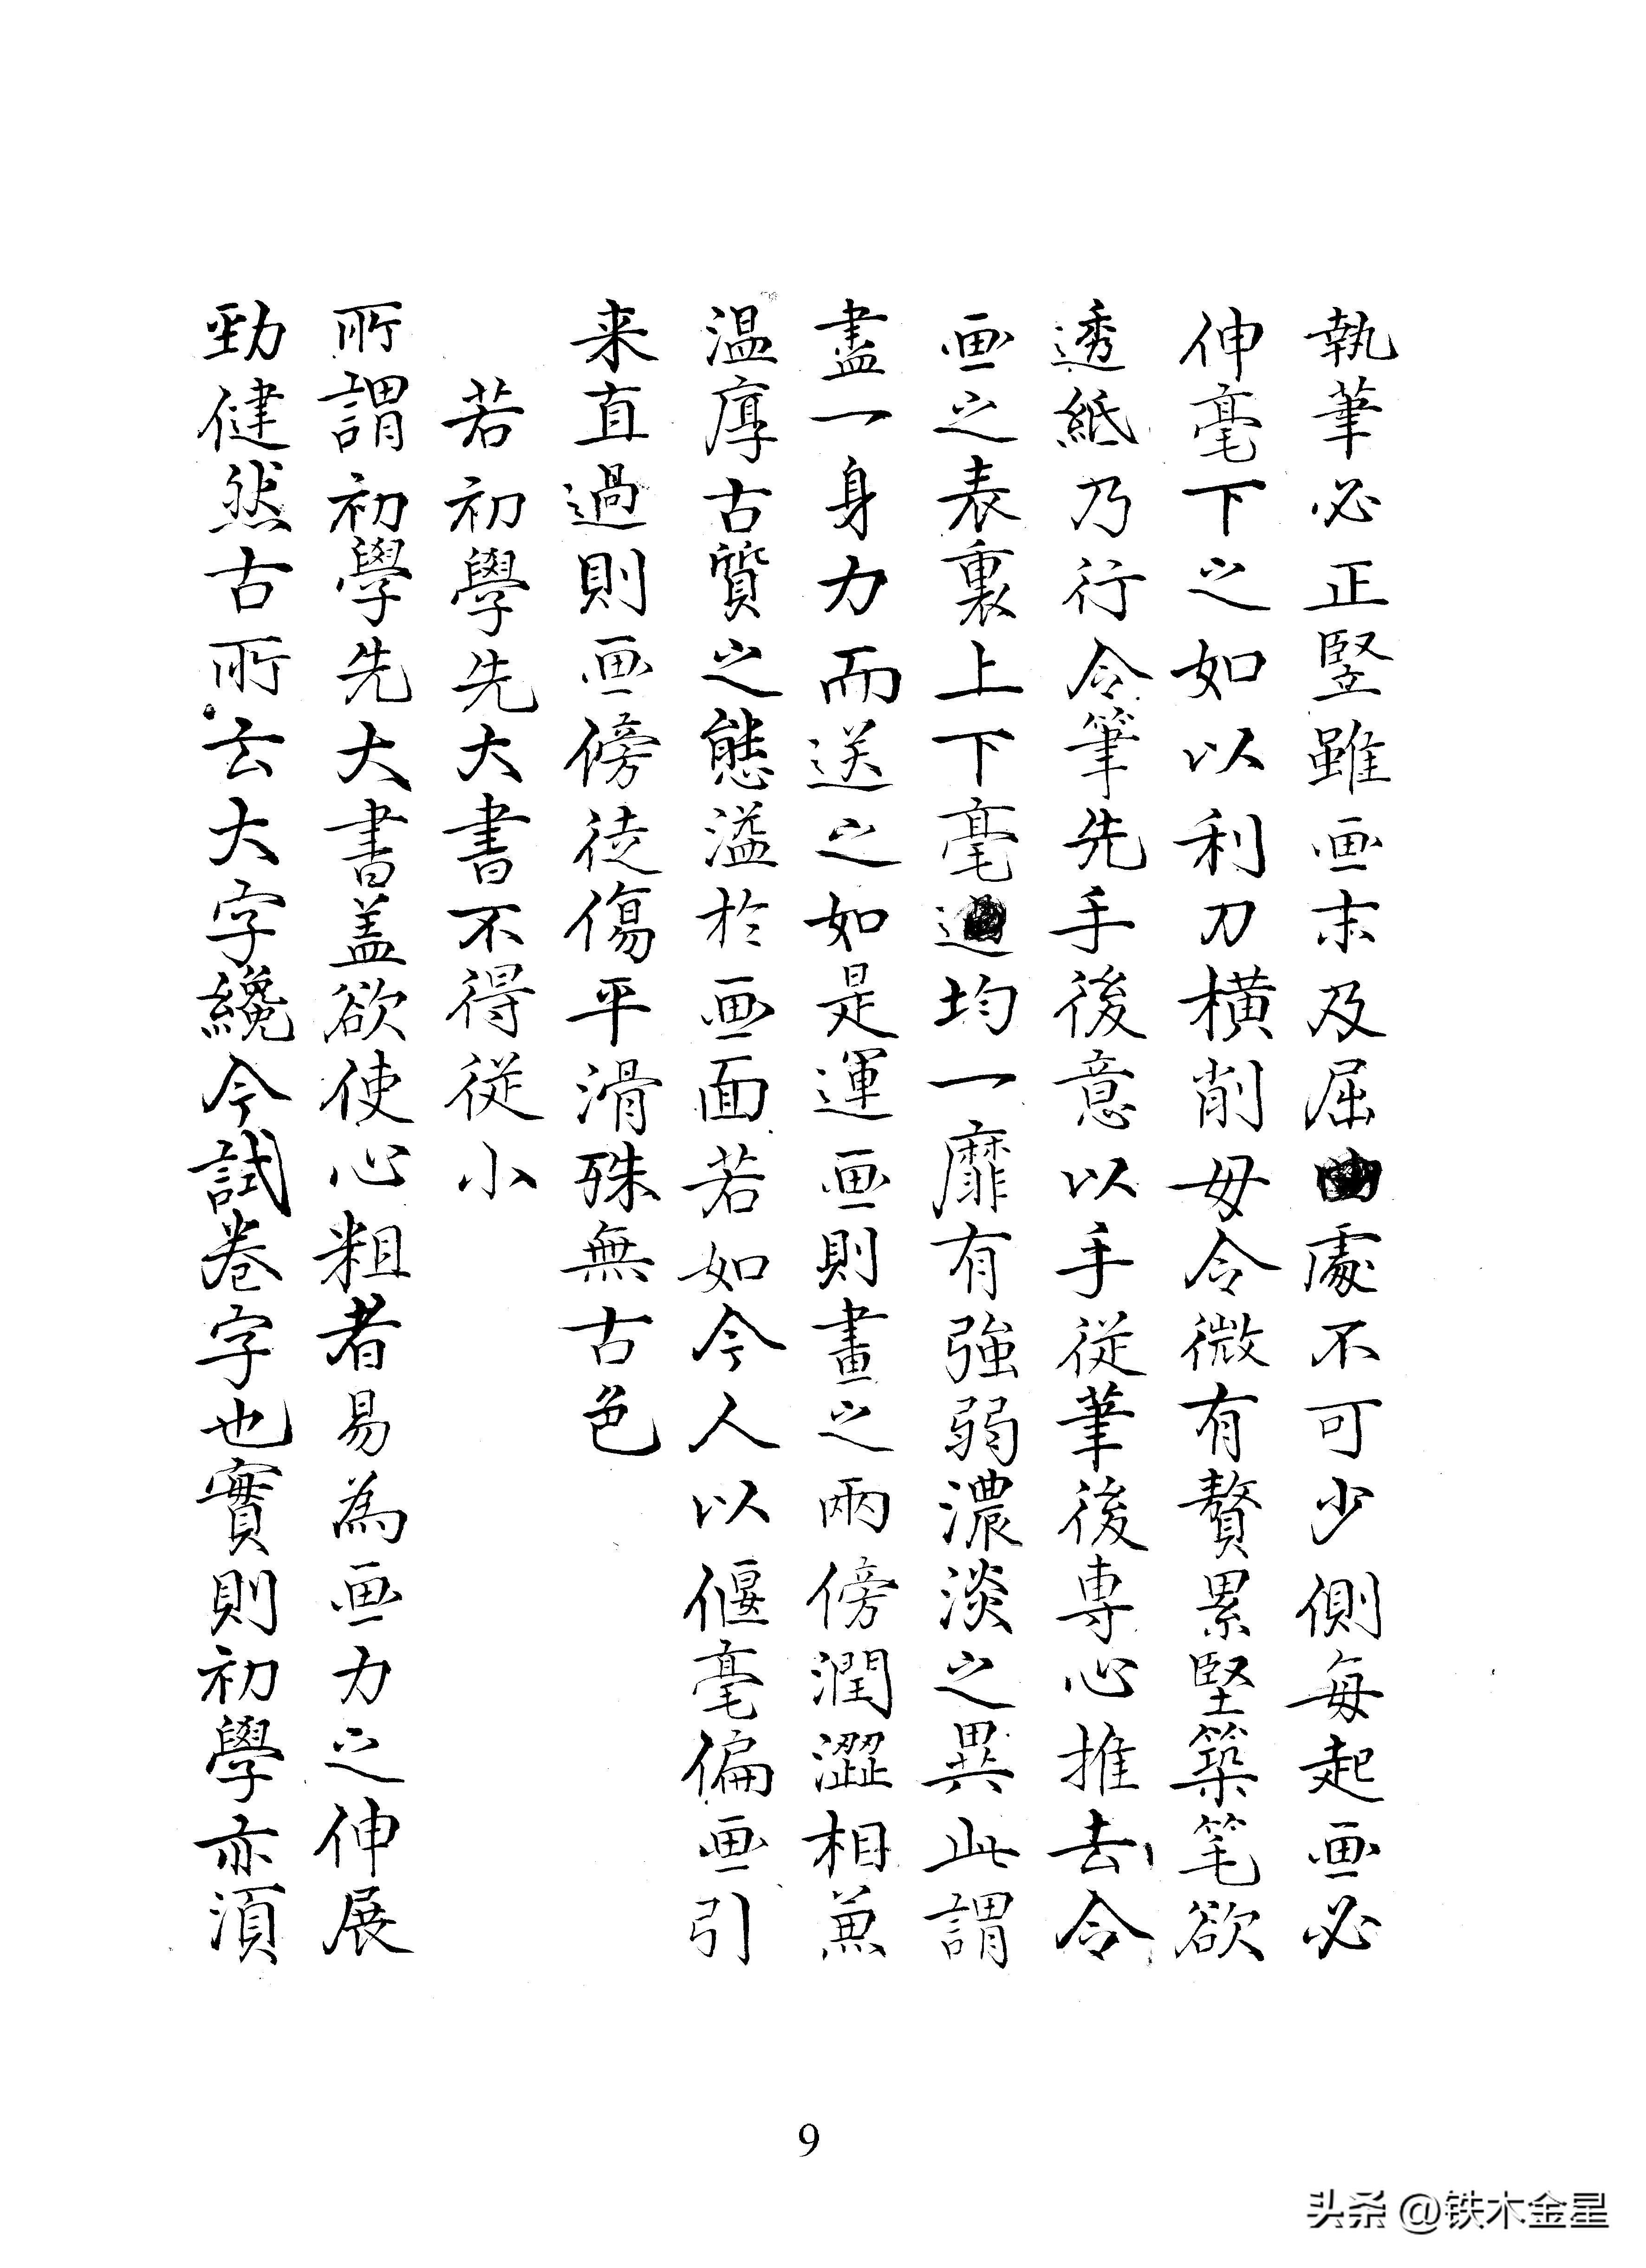 執筆必正竪雖画末及屈曲處不可少側每起画必
伸毫下之如以利刀橫削毋令微有贅累堅築笔欲
透紙乃行令筆先手後意以手從筆後專心推去令
画之表裏上下毫均一靡有強弱濃淡之異此謂
盡一身力而送之如是運画則畫之兩傍潤澀相兼
溫厚古質之態溢於画面若如今人以偃毫偏画引
来直過則画傍徒傷平滑殊無古色
若初學先大書不得從小
所謂初學先大書盖欲使心粗者易為画力之伸展
勁健然古所云大字纔今試卷字也實則初學亦須
9
头条 @铁木金星